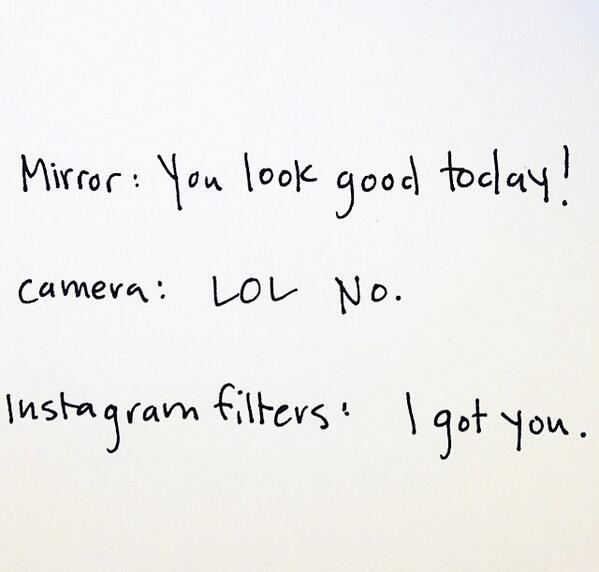 Mirror: You look good today!
Camera: LOL No.
Instagram filters: I got you.